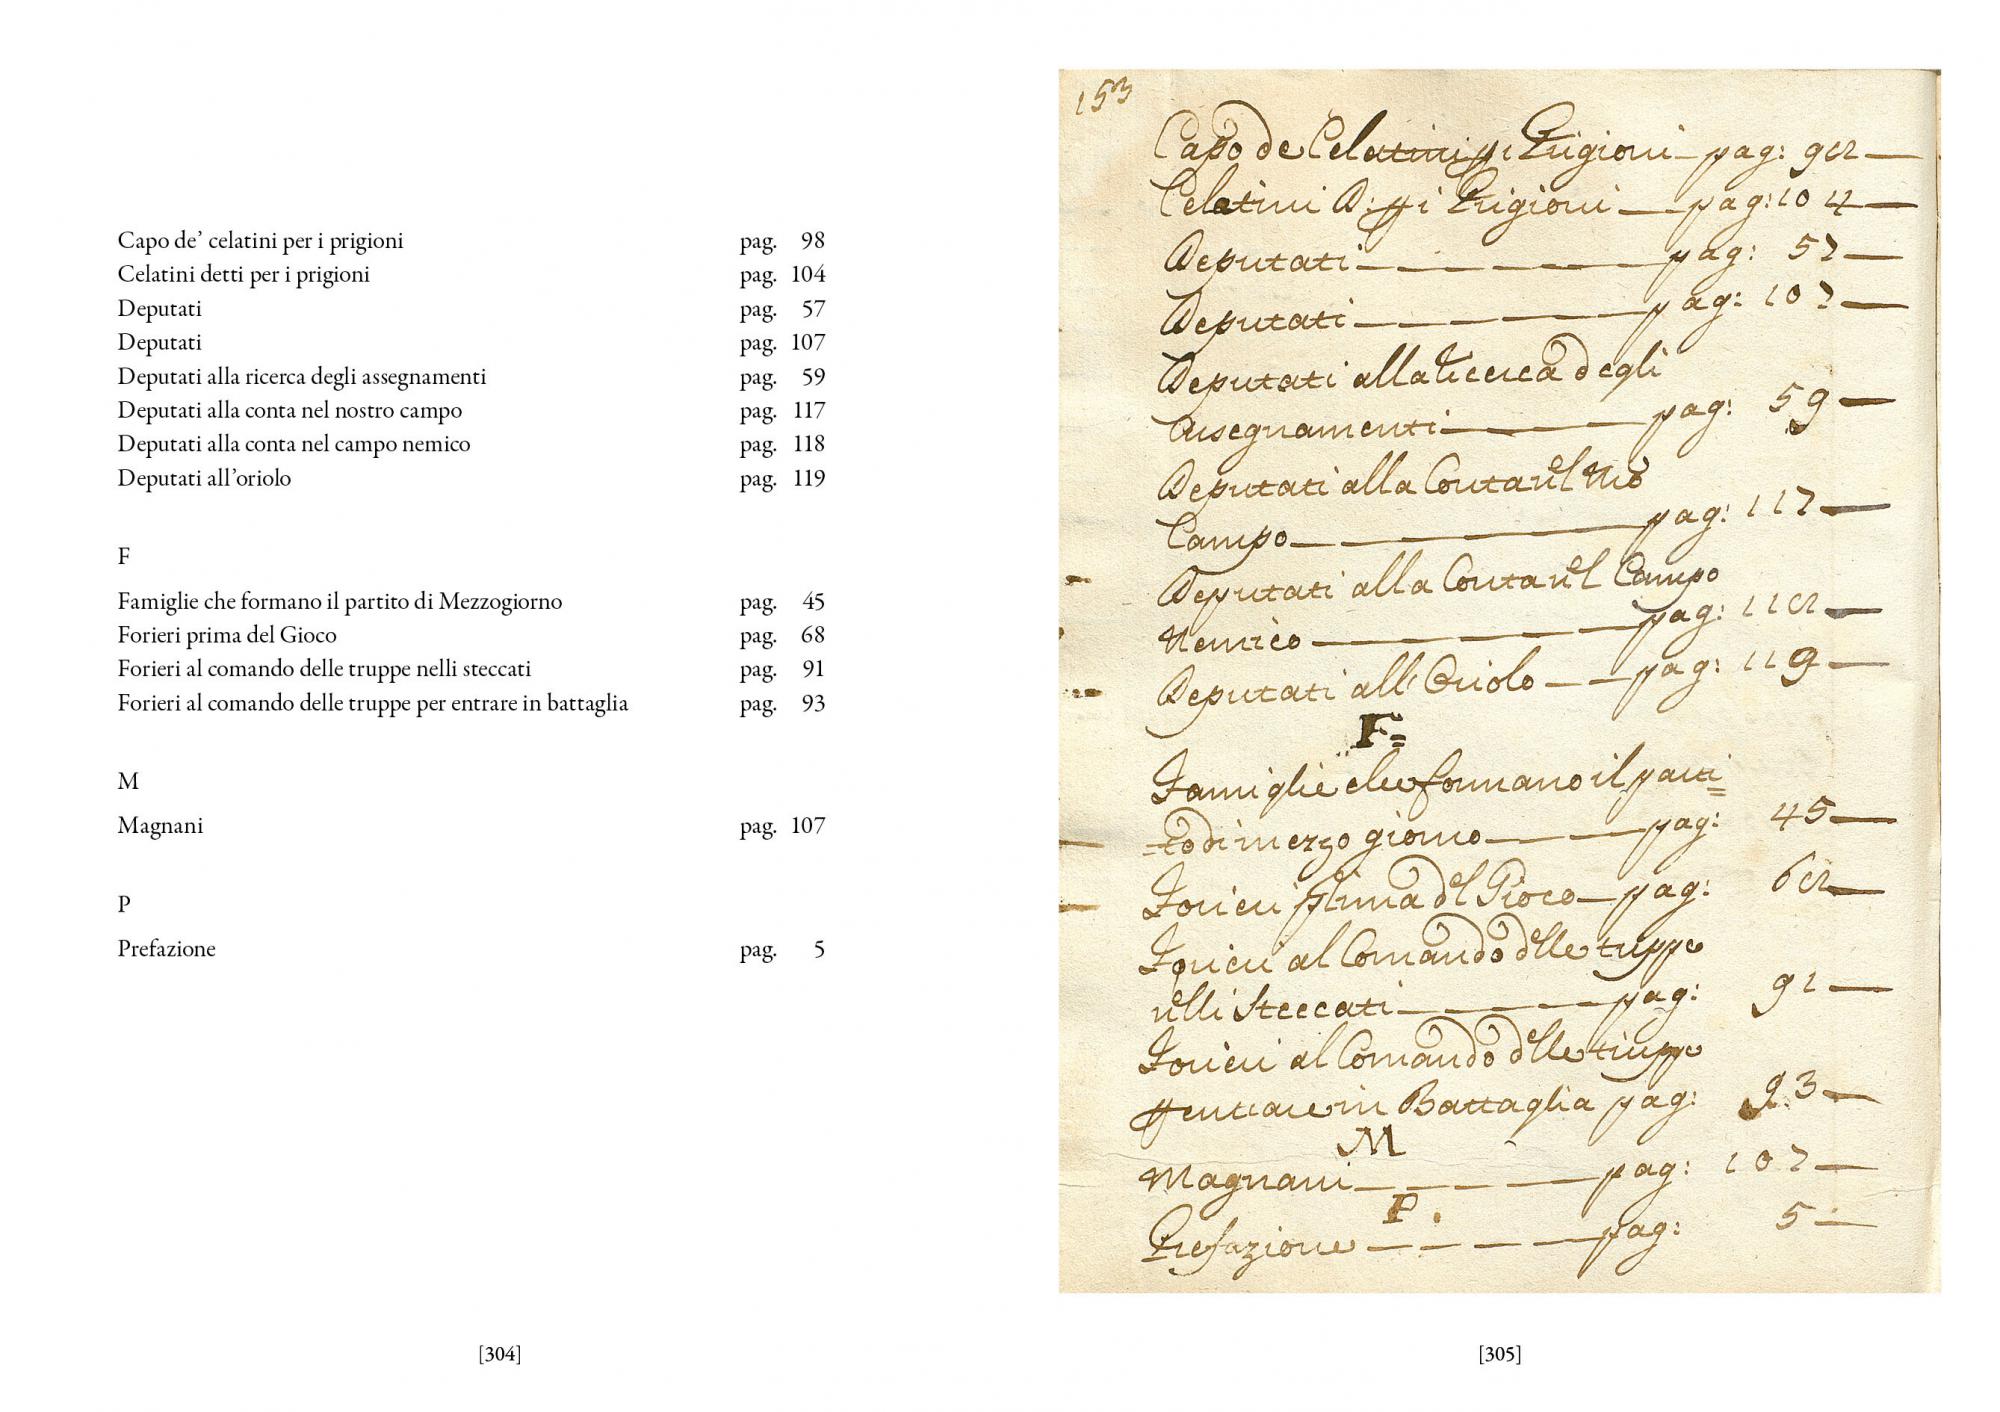 Capo de' celatini per i prigioni pag. 98
Celatini detti per i prigioni pag. 104
Deputati pag. 57
Deputati pag. 107
Deputati alla ricerca degli assegnamenti pag. 59
Deputati alla conta nel nostro campo pag. 117
Deputati alla conta nel campo nemico pag. 118
Deputati all'oriolo pag. 119
F
Famiglie che formano il partito di Mezzogiorno pag. 45
Forieri prima del Gioco pag. 68
Forieri al comando delle truppe nelli steccati pag. 91
Forieri al comando delle truppe per entrare in battaglia pag. 93
M
Magnani pag. 107
P
Prefazione pag. 5
[304]
153
Capo de Celatini p i Prigioni pag: 98
Celatini D: p i Prigioni pag: 104
Deputati pag: 57
Deputati pag: 107
Deputati alla ricerca degli
Assegnamenti pag: 59
Deputati alla Conta nel Nro
Campo pag: 117
Deputati alla Conta nel Campo
Nemico pag: 118
Deputati all'Oriolo pag: 119
F=
Famiglie che formano il parti=
=to di mezzo giorno pag: 45
Forieri prima del Gioco pag: 68
Forieri al Comando delle truppe
nelli Steccati pag: 91
Forieri al Comando delle truppe
p entrare in Battaglia pag: 93
M
Magnani pag: 107
P.
Prefazione pag: 5
[305]